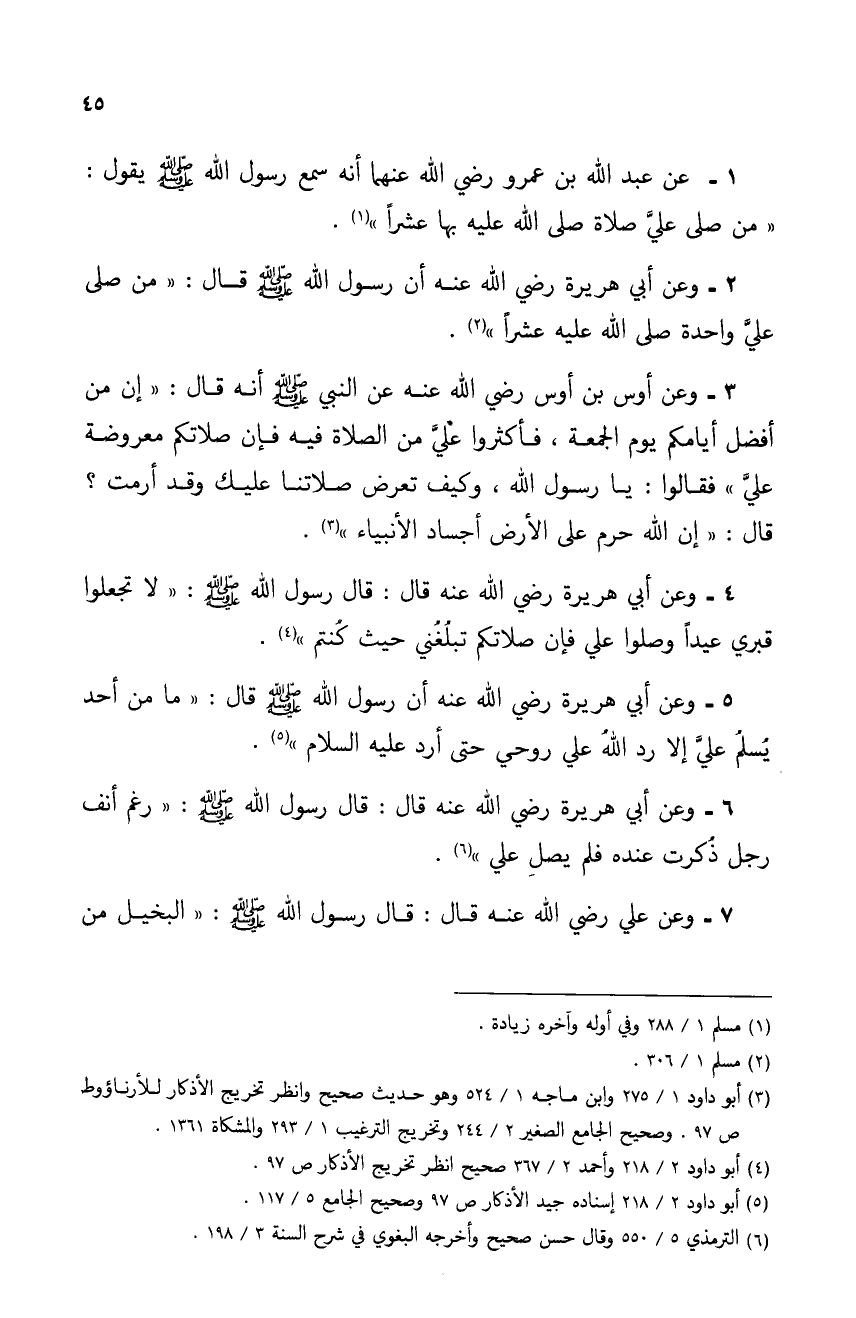 ٤٥
١ - عن عبد الله بن عمرو رضي الله عنهما أنه سمع رسول الله ﷺ يقول :
« من صلى عليَّ صلاة صلى الله عليه بها عشراً »(١) .
٢ - وعن أبي هريرة رضي الله عنه أن رسول الله ﷺ قال : « من صلى
عليَّ واحدة صلى الله عليه عشراً »(٢) .
٣ - وعن أوس بن أوس رضي الله عنه عن النبي ﷺ أنه قال : « إن من
أفضل أيامكم يوم الجمعة ، فأكثروا عليَّ من الصلاة فيه فإن صلاتكم معروضة
عليَّ » فقالوا : يا رسول الله ، وكيف تعرض صلاتنا عليك وقد أرمت ؟
قال : « إن الله حرم على الأرض أجساد الأنبياء »(٣) .
٤ - وعن أبي هريرة رضي الله عنه قال : قال رسول الله ﷺ : « لا تجعلوا
قبري عيداً وصلوا علي فإن صلاتكم تبلُغُني حيث كُنتم »(٤) .
٥ - وعن أبي هريرة رضي الله عنه أن رسول الله ﷺ قال : « ما من أحد
يُسلمُ عليَّ إلا رد اللهُ علي روحي حتى أرد عليه السلام »(٥) .
٦ - وعن أبي هريرة رضي الله عنه قال : قال رسول الله ﷺ : « رغم أنف
رجل ذُكرت عنده فلم يصلِ علي »(٦) .
٧ - وعن علي رضي الله عنه قال : قال رسول الله ﷺ : « البخيل من
(١) مسلم ١ / ٢٨٨ وفي أوله وآخره زيادة .
(٢) مسلم ١ / ٣٠٦ .
(٣) أبو داود ١ / ٢٧٥ وابن ماجه ١ / ٥٢٤ وهو حديث صحيح وانظر تخريج الأذكار للأرناؤوط
ص ٩٧ . وصحيح الجامع الصغير ٢ / ٢٤٤ وتخريج الترغيب ١ / ٢٩٣ والمشكاة ١٣٦١ .
(٤) أبو داود ٢ / ٢١٨ وأحمد ٢ / ٣٦٧ صحيح انظر تخريج الأذكار ص ٩٧ .
(٥) أبو داود ٢ / ٢١٨ إسناده جيد الأذكار ص ٩٧ وصحيح الجامع ٥ / ١١٧ .
(٦) الترمذي ٥ / ٥٥٠ وقال حسن صحيح وأخرجه البغوي في شرح السنة ٣ / ١٩٨ .